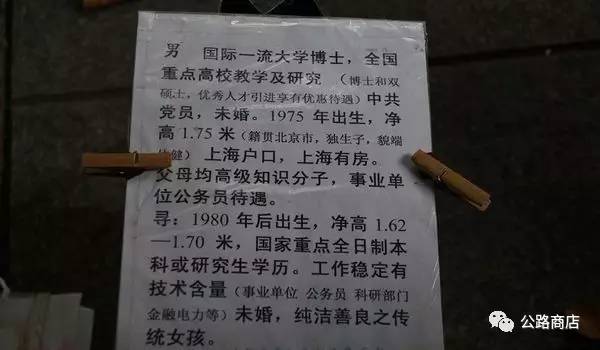 男 国际一流大学博士，全国
重点高校教学及研究 （博士和双
硕士，优秀人才引进享有优惠待遇）中共
党员，未婚。1975 年出生，净
高 1.75 米（籍贯北京市，独生子，貌端
健）上海户口，上海有房。
父母均高级知识分子，事业单
位公务员待遇。
寻：1980 年后出生，净高 1.62
—1.70 米，国家重点全日制本
科或研究生学历。工作稳定有
技术含量（事业单位 公务员 科研部门
金融电力等）未婚，纯洁善良之传
统女孩。
公路商店